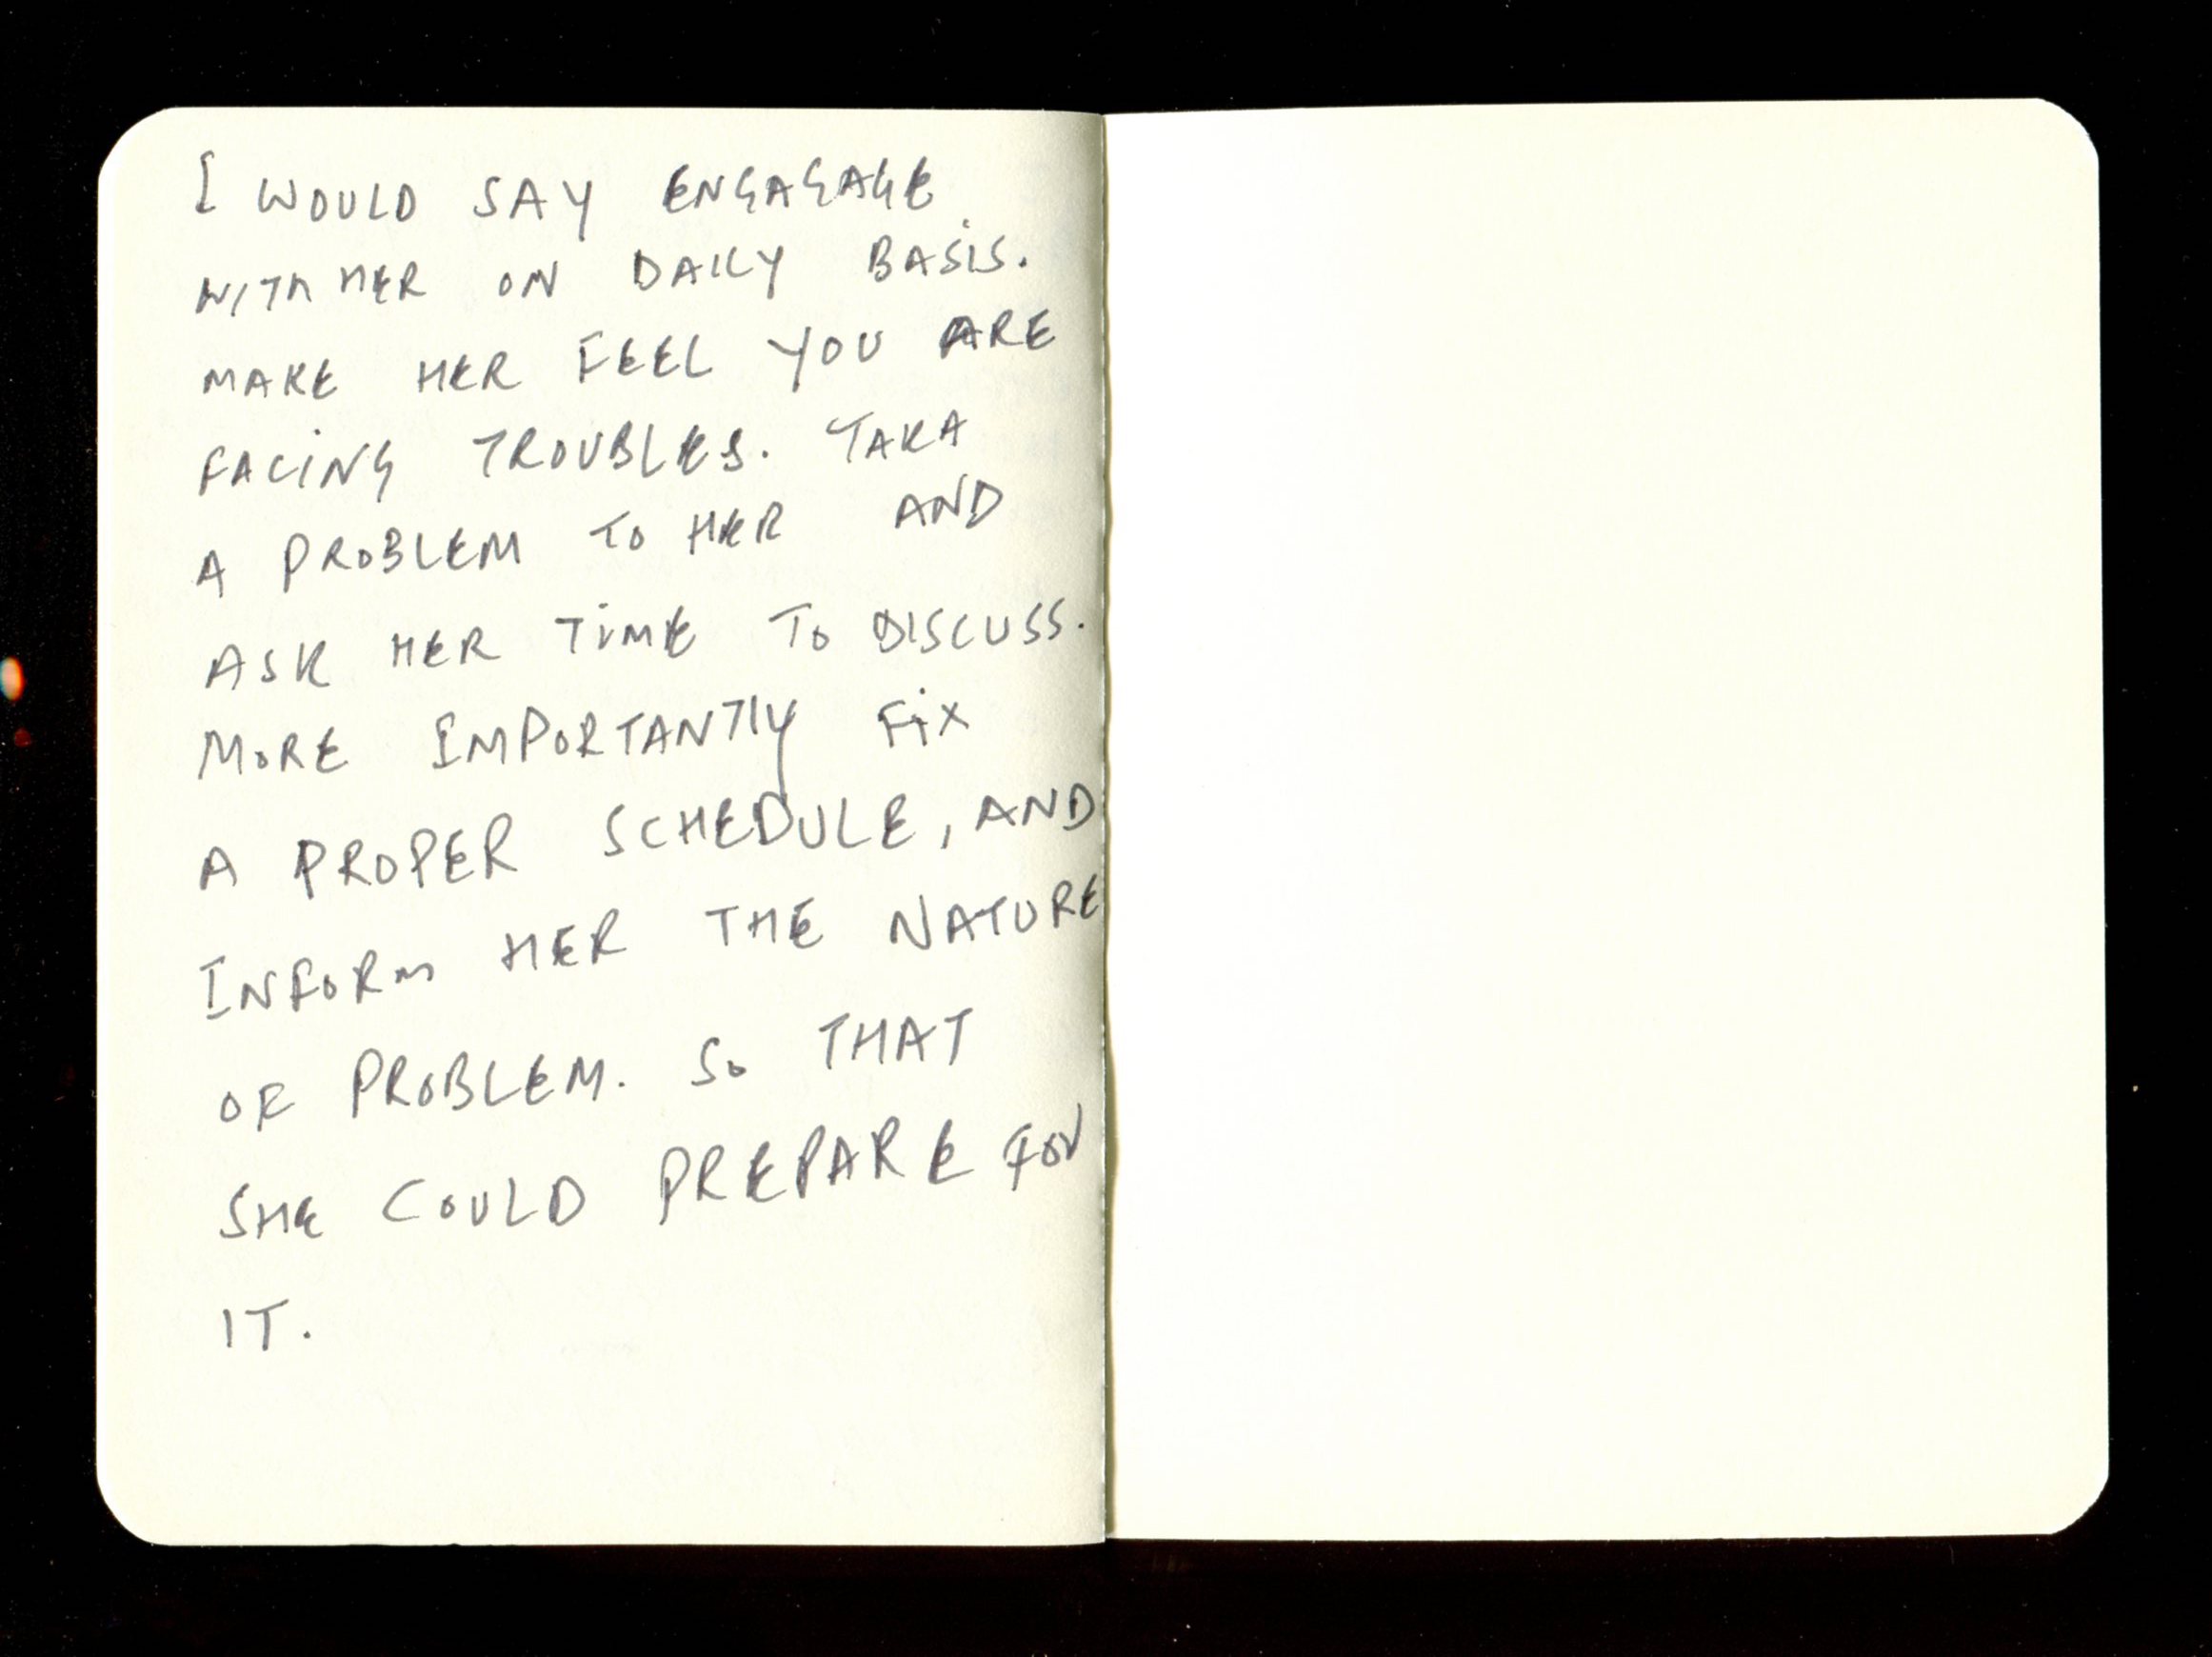 I WOULD SAY ENGAGAGE
WITH HER ON DAILY BASIS.
MAKE HER FEEL YOU ARE
FACING TROUBLES. TAKA
A PROBLEM TO HER AND
ASK HER TIME TO DISCUSS.
MORE IMPORTANTLY FIX
A PROPER SCHEDULE, AND
INFORM HER THE NATURE
OF PROBLEM. SO THAT
SHE COULD PREPARE FOR
IT.